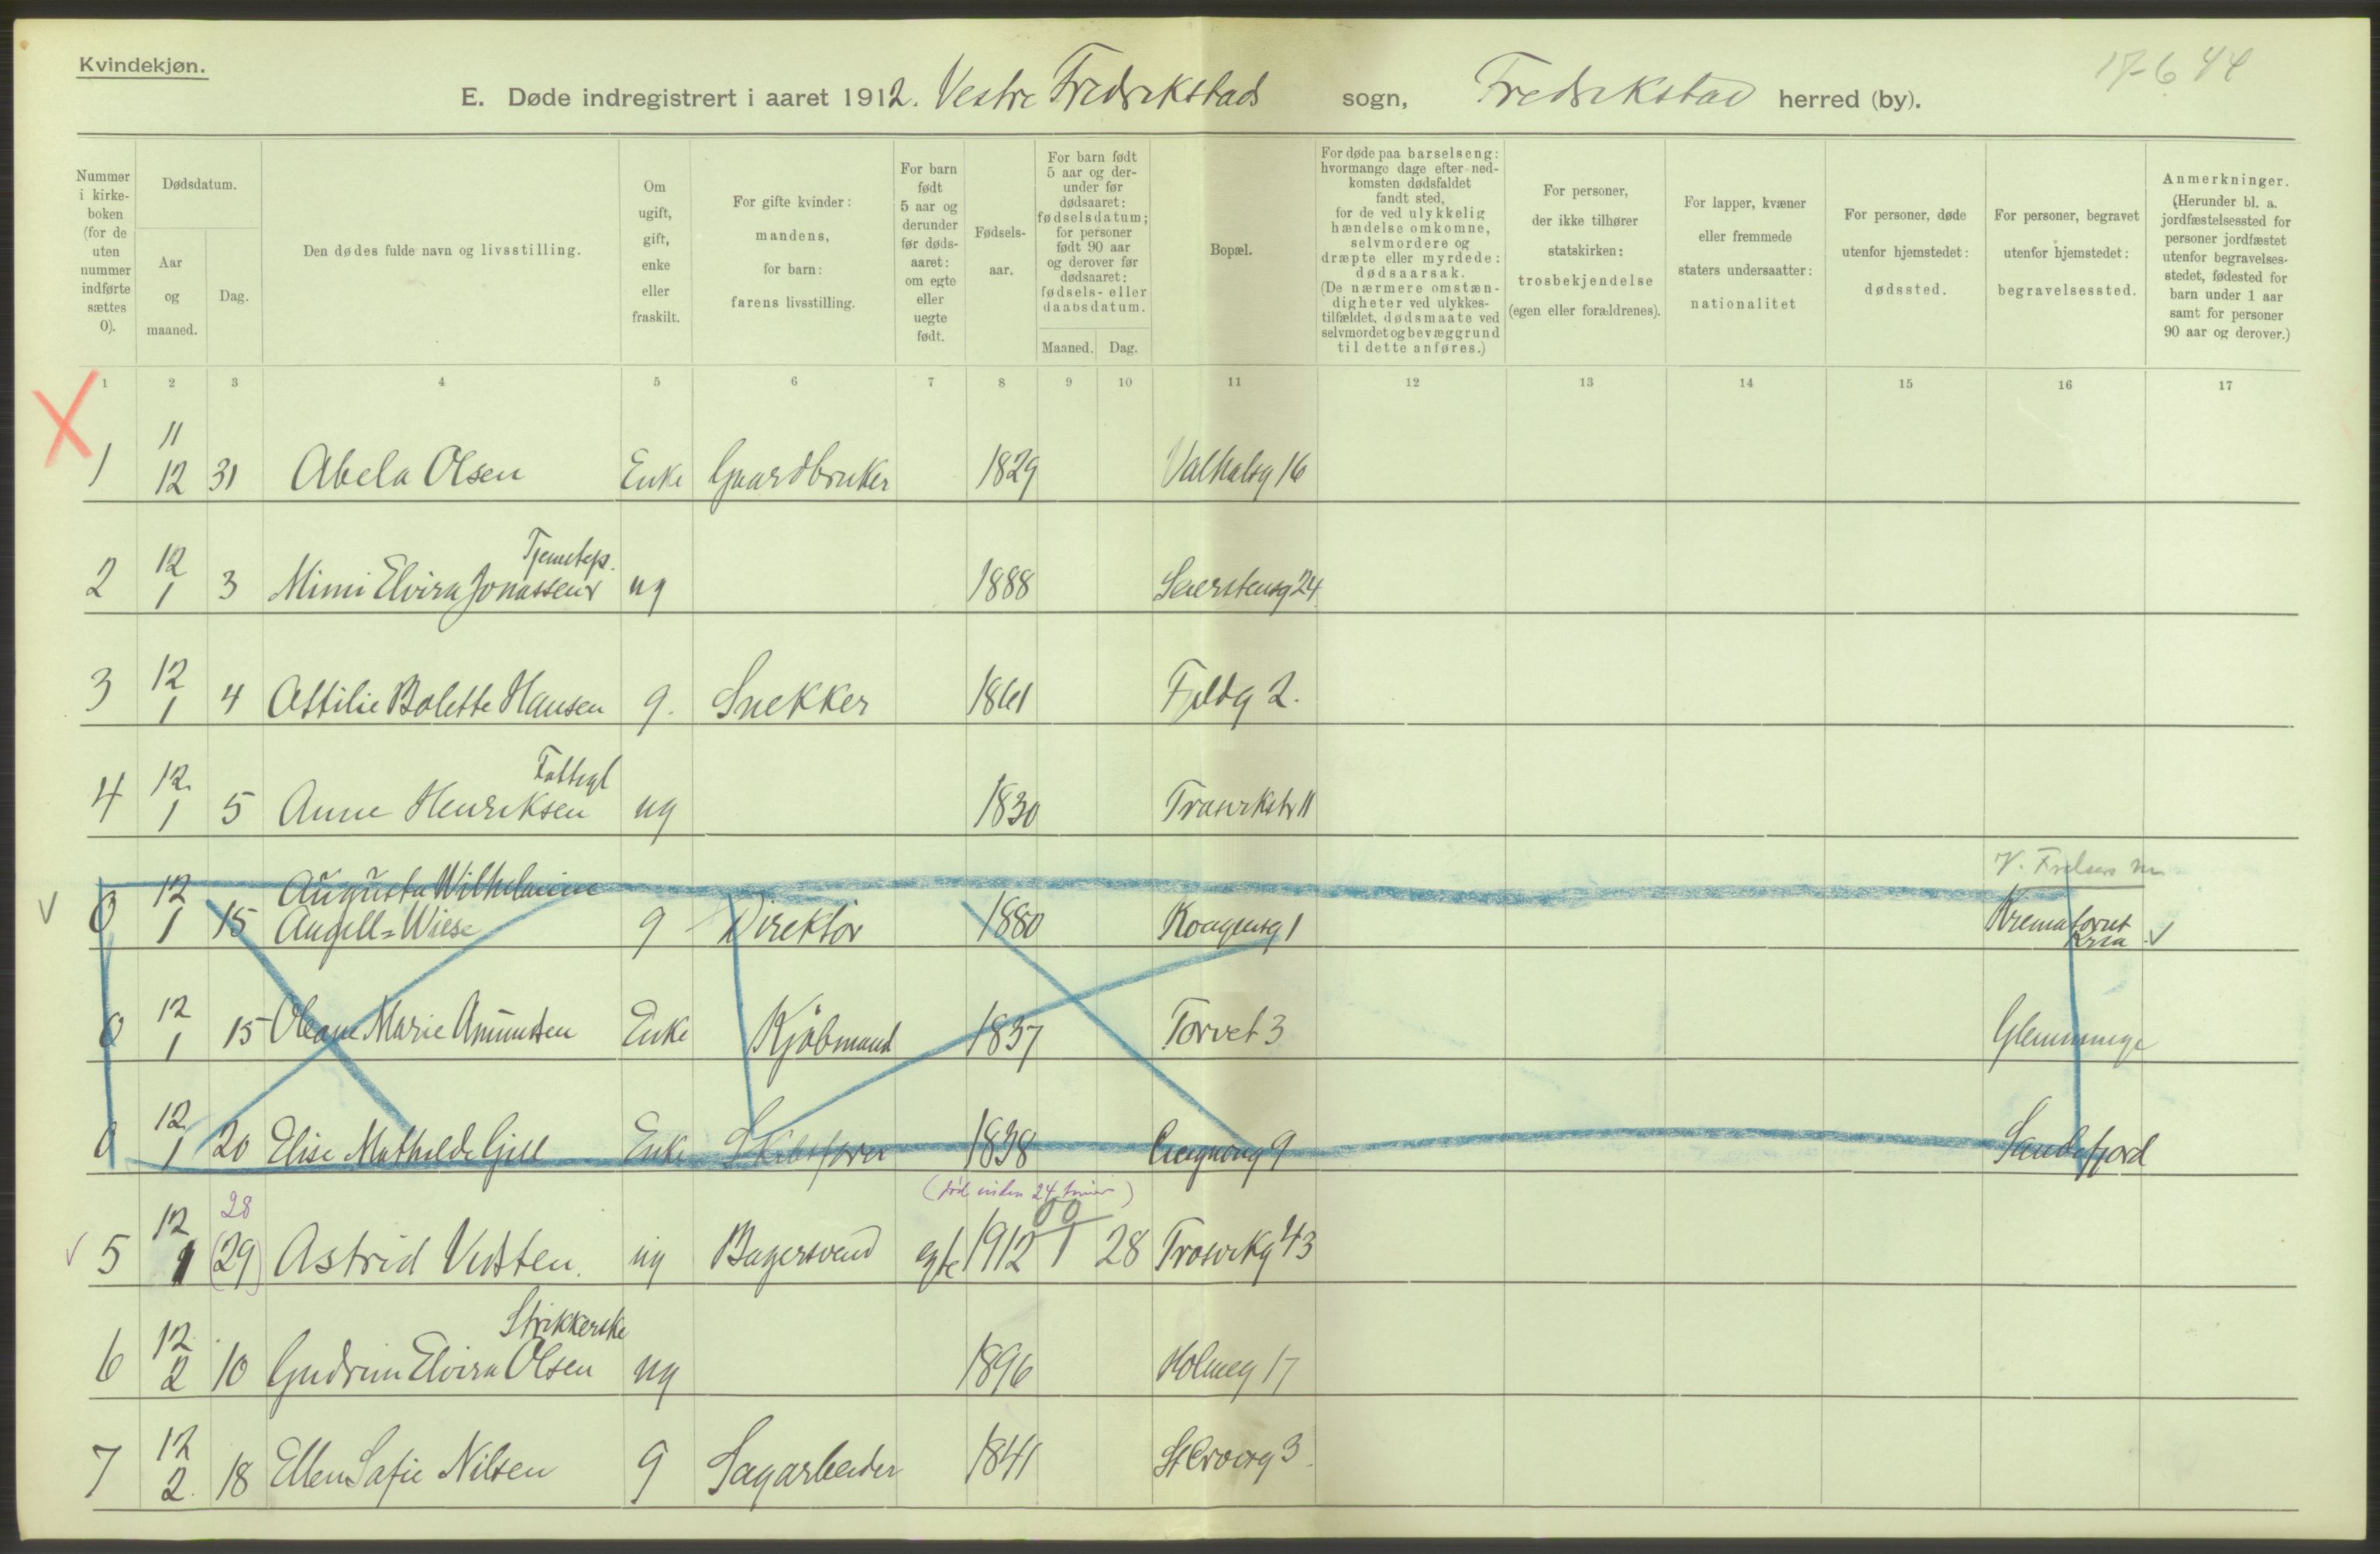 Kvindekjøn.
17-6 44
E. Døde indregistrert i aaret 1912. Vestre Fredrikstads sogn, Fredrikstad herred (by).
Nummer i kirkeboken (for de uten nummer indførte sættes 0).
Dødsdatum.
Aar og maaned.
Dag.
Den dødes fulde navn og livsstilling.
Om ugift, gift, enke eller fraskilt.
For gifte kvinder: mandens, for barn: farens livsstilling.
For barn født 5 aar og derunder før dødsaaret: om egte eller uegte født.
Fødselsaar.
For barn født 5 aar og derunder før dødsaaret: fødselsdatum; for personer født 90 aar og derover før dødsaaret: fødsels- eller daabsdatum.
Maaned. Dag.
Bopæl.
For døde paa barselseng: hvormange dage efter nedkomsten dødsfaldet fandt sted, for de ved ulykkelig hændelse omkomne, selvmordere og dræpte eller myrdede: dødsaarsak. (De nærmere omstændigheter ved ulykkestilfældet, dødsmaate ved selvmordet og bevæggrund til dette anføres.)
For personer, der ikke tilhører statskirken: trosbekjendelse (egen eller forældrenes).
For lapper, kvæner eller fremmede staters undersaatter: nationalitet
For personer, døde utenfor hjemstedet: dødssted.
For personer, begravet utenfor hjemstedet: begravelsessted.
Anmerkninger. (Herunder bl. a. jordfæstelsessted for personer jordfæstet utenfor begravelsesstedet, fødested for barn under 1 aar samt for personer 90 aar og derover.)
1 2 3 4 5 6 7 8 9 10 11 12 13 14 15 16 17
11
1 12 31 Abela Olsen Enke Gaardbruker 1829 Valhalsg 16
12 Tjenestep.
2 1 3 Mimi Elvira Jonassen ug 1888 24
12
3 1 4 Ottilie Bolette Hansen g. Snekker 1861 Fjeldg 2.
12 Fattigl
4 1 5 Anne Henriksen ug 1830 Trosvikstr 11
V. Frelsers
12 Augusta Wilhelmine
0 1 15 Angell=Wiese g Direktør 1880 Kongensg 1 Krematoriet
Kria
12
0 1 15 Oleane Marie Amundsen Enke Kjøbmand 1837 Torvet 3 Glemminge
12
0 1 20 Elise Mathilde Gill Enke Skibsfører 1838 9 Sandefjord
28 (død inden 24 timer)
12 00
5 1 (29) Astrid Vidsten. ug Bagersvend egte 1912 1 28 Trosvikg 43
12 Strikkerske
6 2 10 Gudrun Elvira Olsen ug 1896 Holmeg 17
12
7 2. 18 Ellen Sofie Nilsen g Sagarbeider 1841 St Croixg 3